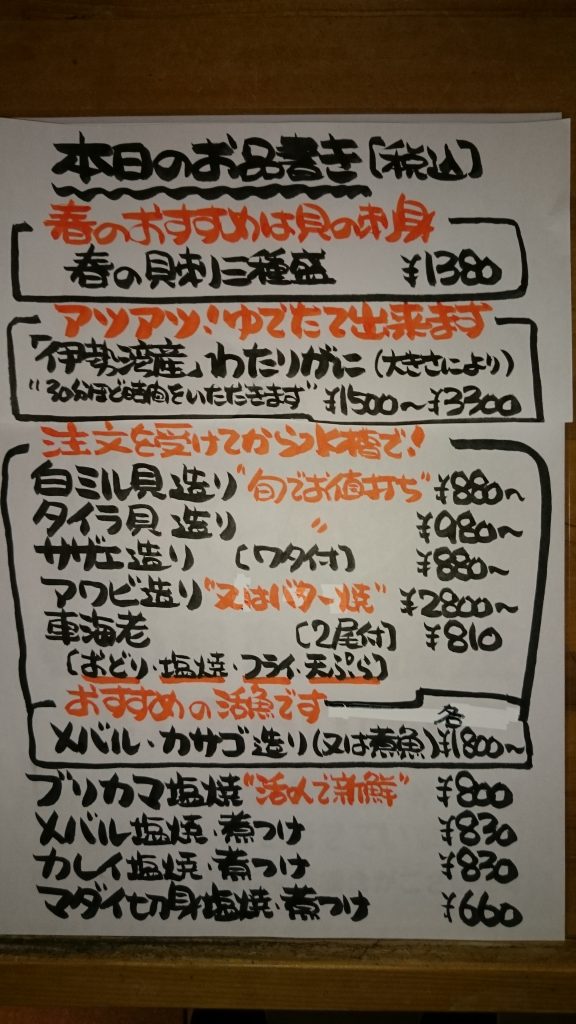 本日のお品書き〔税込〕
春のおすすめは貝の刺身
春の貝刺三種盛 ¥1380
アツアツ!ゆでたて出来ます
「伊勢湾産」わたりがに(大きさにより)
"30分ほど時間をいただきます" ¥1500～¥3300
注文を受けてから水槽で!
白ミル貝造り"旬でお値打ち" ¥880～
タイラ貝造り 〃 ¥980～
サザエ造り 〔ワタ付〕 ¥880～
アワビ造り"又はバター焼" ¥2800～
車海老 〔2尾付〕 ¥810
〔おどり・塩焼・フライ・天ぷら〕
おすすめの活魚です
メバル・カサゴ造り(又は煮魚)各¥1800～
ブリカマ塩焼"活〆で新鮮" ¥800
メバル塩焼・煮つけ ¥830
カレイ塩焼・煮つけ ¥830
マダイ切身塩焼・煮つけ ¥660